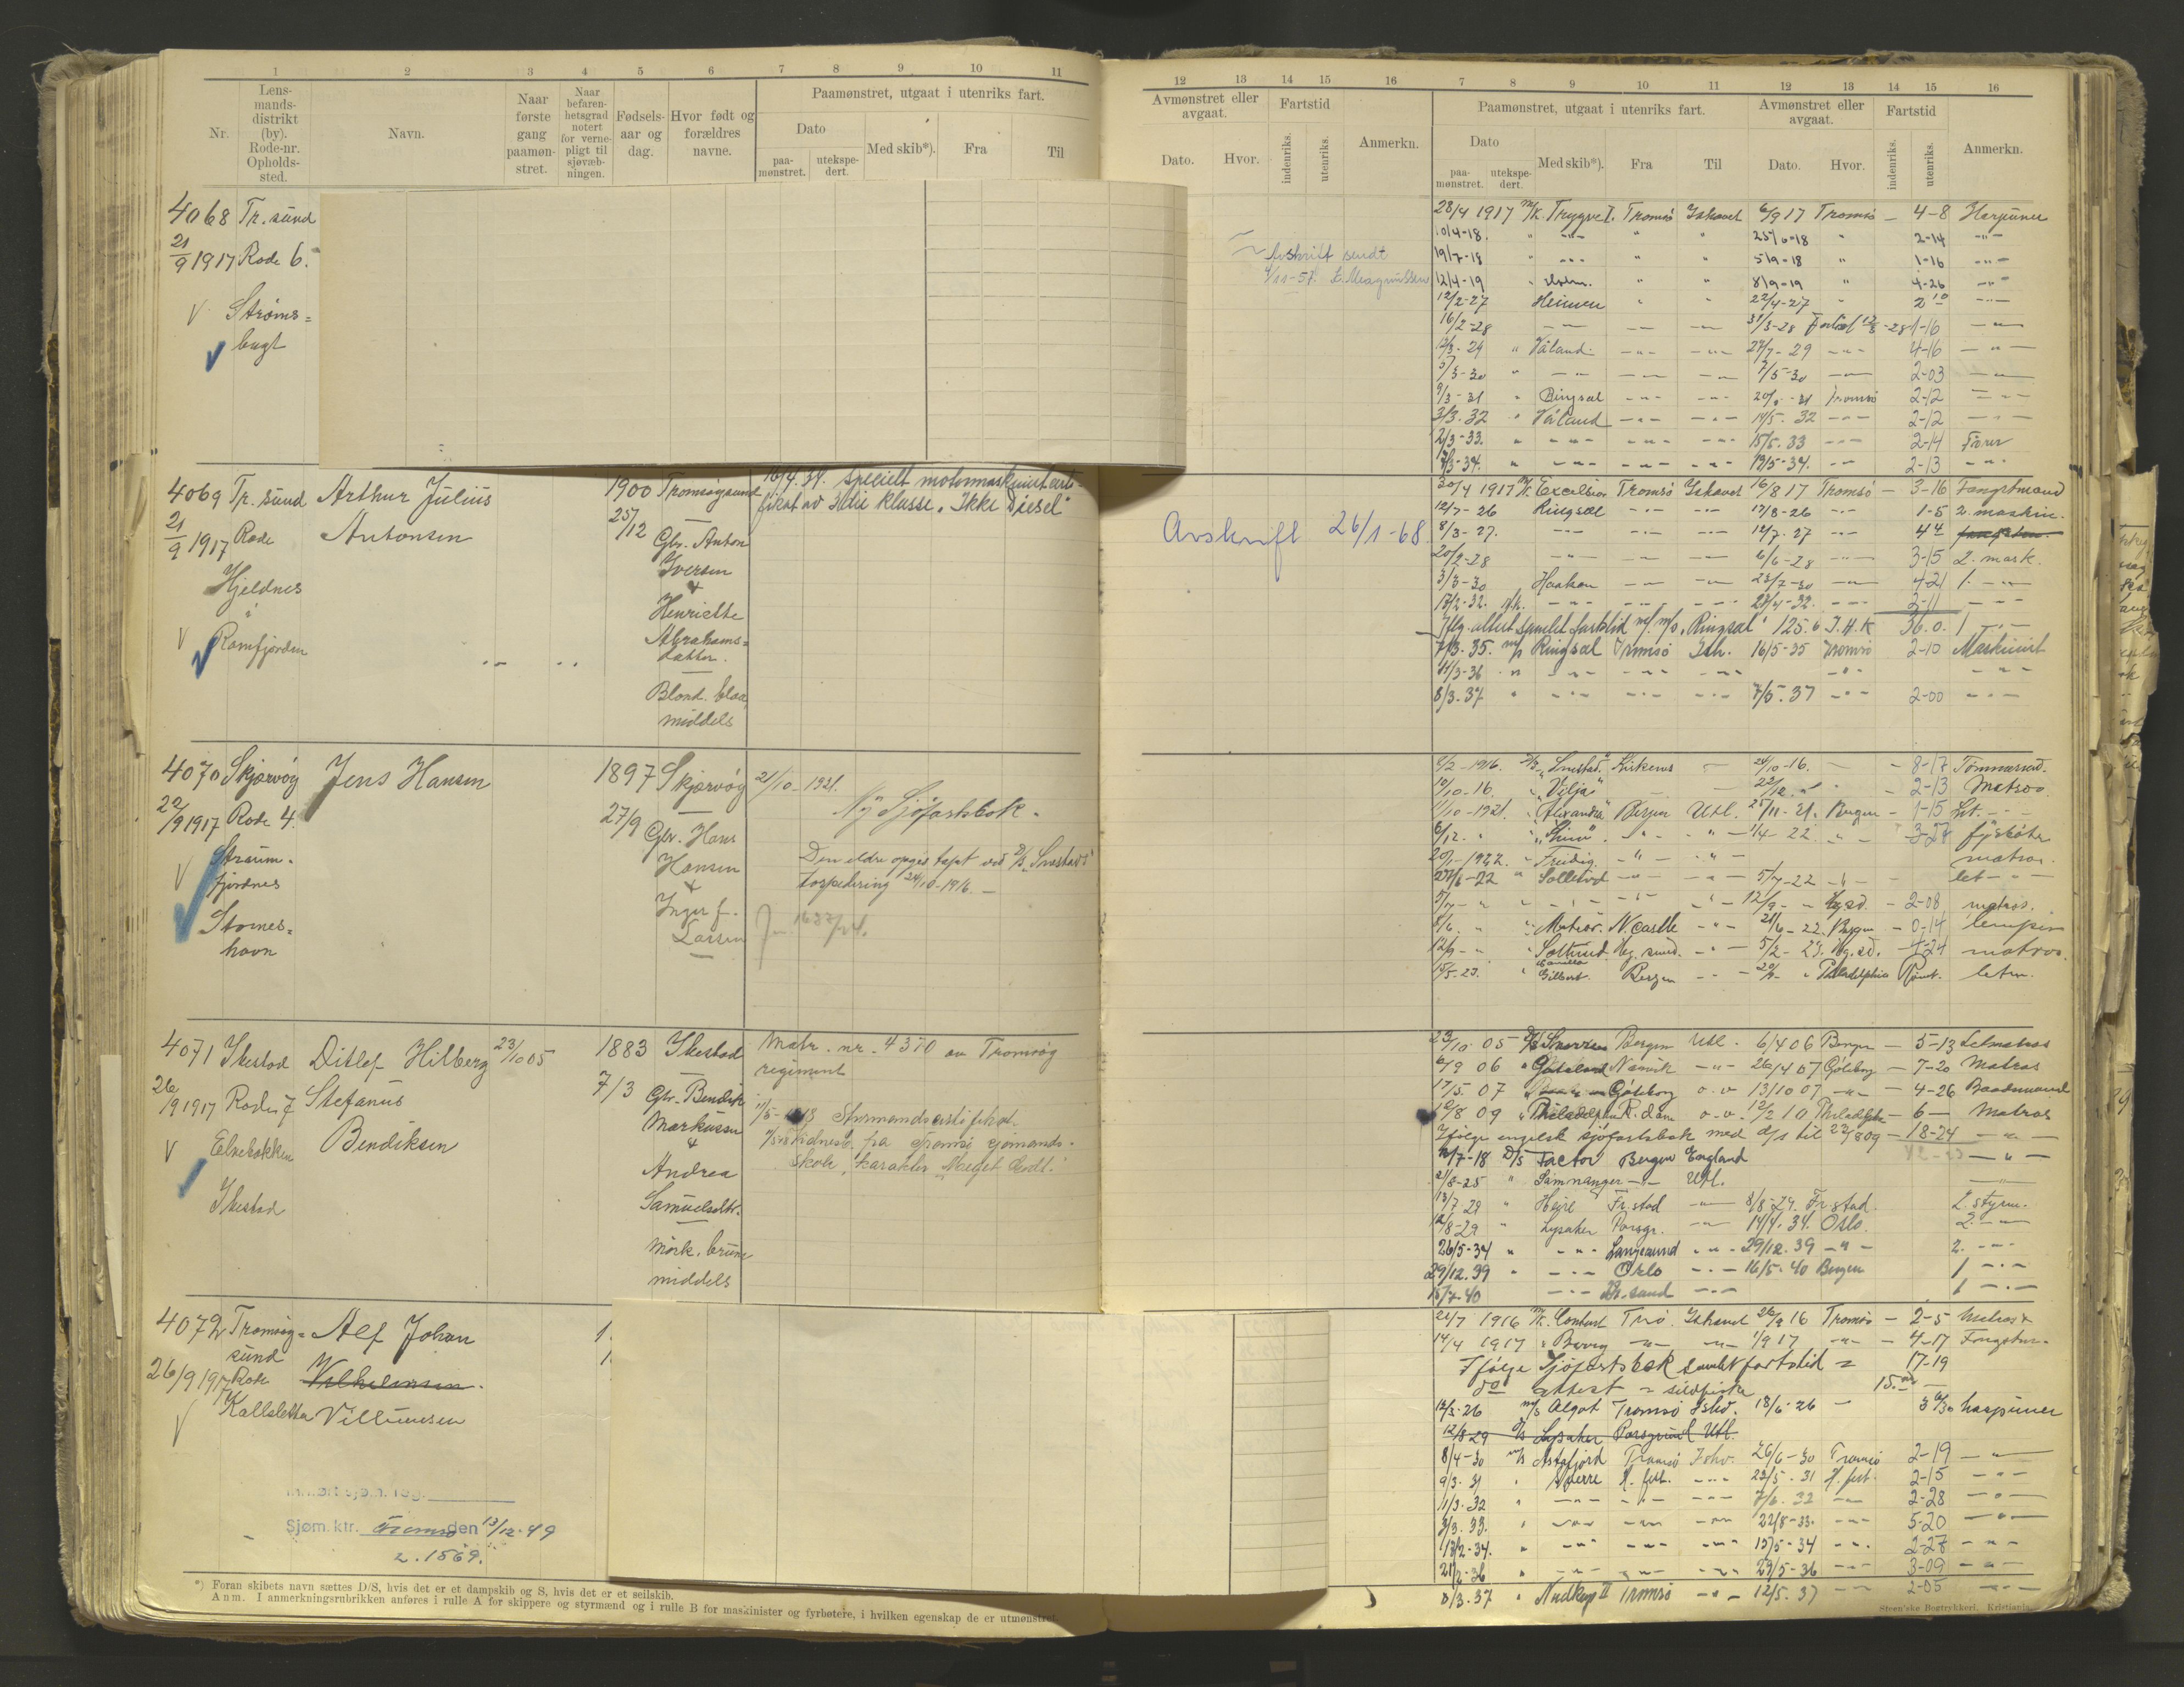 1 2 3 4 5 6 7 8 9 10 11
Nr.
Lens-
mands-
distrikt
(by).
Rode-nr.
Opholds-
sted.
Navn.
Naar
første
gang
paamøn-
stret.
Naar
befaren-
hetsgrad
notert
for verne-
pligt til
sjøvæb-
ningen.
Fødsels-
aar og
dag.
Hvor født og
forældres
navne.
Paamønstret, utgaat i utenriks fart.
Dato
paa-
mønstret.
utekspe-
dert.
Med skib*).
Fra
Til
4068 Tr. sund
21/9 1917 Rode 6.
V Strøms=
bugt
4069 Tr. sund Arthur Julius 1900 Tromsøysund
21/9 1917 Rode Antonsen 25/12 Gbr. Anton
Hjeldnes Iversen
V Ramfjorden +
Henriette
Abrahams=
datter.
Blond. blaa
middels
16/4.34. Specielt motormaskinistcerti-
fikat av 3die klasse. "Ikke Diesel"
4070 Skjærvøy Jens Hansen 1897 Skjærvøy
22/9 1917 Rode 4. 27/9 Gbr. Hans
V Straum-
fjordnes Hansen
Stornes=
havn
+
Inger f.
Larsen
21/10-1921.
Ny Sjøfartsbok.
Den eldre opgis tapt ved D/S "Snestads"
torpedering 24/10-1916. -
Jn. 1637/24.
4071 Ibestad Ditlef Hilberg 23/10 05 1883 Ibestad
26/9 1917 Rode 7 Stefanus 7/3 Gbr. Bendik
V Elnebakken Bendiksen Markussen
Ibestad +
Andrea
Samuelsdtr.
Mørk. brune
middels
Matr. nr. 4370 av Tromsøy
regiment
Styrmandscertifikat.
Vidnesb. fra Tromsø sjømands-
skole, karakter "Meget Godt."
4072 Tromsøy= Alf Johan
sund
26/9 1917 Rode Vilhelmsen.
V Kallsletta Villumsen
Sjøm. ktr. Tromsø den 13/12-49
2. 1569.
*) Foran skibets navn sættes D/S, hvis det er et dampskib og S, hvis det er et seilskib.
Anm. I anmerkningsrubrikken anføres i rulle A for skippere og styrmænd og i rulle B for maskinister og fyrbøtere, i hvilken egenskap de er utmønstret.
12 13 14 15 16 7 8 9 10 11 12 13 14 15 16
Avmønstret eller
avgaat.
Dato.
Hvor.
Fartstid
indenriks.
utenriks.
Anmerkn.
Paamønstret, utgaat i utenriks fart.
Dato
paa-
mønstret.
utekspe-
dert.
Med skib*).
Fra
Til
Avmønstret eller
avgaat.
Dato.
Hvor.
Fartstid
indenriks.
utenriks.
Anmerkn.
Avskrift sendt
4/11-57. E. Magnussen
28/4 1917 M/K. Trygve I. Tromsø Ishavet 6/9 17 Tromsø - 4-8 Harpuner
10/4-18. " -"- " " 25/6-18 " 2-14 -"-
19/7-18 " -"- " " 5/9-18 " 1-16 -"-
12/4-19 " " " 8/9-19 " 4-26 -"-
12/2-27 Heimen " " 22/4-27 " 2 10 -"-
16/2-28 -"- -"- -"- 31/3-28 1-16 -"-
12/3-29 " Våland -"- -"- 27/7-29 -"- 4-16 -"-
5/3-30 " -"- -"- -"- 7/5-30 -"- 2-03 -"-
9/3-31 " Ringsæl -"- -"- 20/5-31 Tromsø 2-12 -"-
3/3.32 " Våland -"- -"- 14/5.32 -"- 2-12 -"-
2/3-33. " -"- -"- -"- 15/5.33 -"- 2-14 Fører
7/3-34. " -"- -"- -"- 19/5-34. -"- 2-13 -"-
Avskrift 26/1-68
30/4 1917 M/K. Excelsior Tromsø Ishavet 16/8 17 Tromsø - 3-16 Fangstmand
12/7-26 Ringsæl -"- -"- 17/8-26 -"- 1-5 2. maskin.
8/3-27. -"- -"- -"- 12/7-27 -"- 4 4
20/2-28 -"- -"- -"- 6/6-28 -"- 3-15 2. mask.
3/3-30 Haakon -"- -"- 23/7-30 -"- 4-21 1. -"-
-"- -"- -"- -"- 2-11 -"-
Iflg. attest samlet fartstid m/ m/s "Ringsæl" 125.6 I.H.K 36.0. 1 -"-
7/3.35. m/s Ringsæl Tromsø Ish. 16/5-35 Tromsø 2-10 Maskinist
11/3-36 " -"- -"- -"- -"- -"-
8/3.37 " -"- -"- -"- 7/5.37 -"- 2-00 -"-
8/2-1916. D/S "Snestad" Kirkenes - 24/10-16. - 8-17 Tømmermd.
10/10-16. " "Vilja" 22/12. 2-13 Matros
11/10-1921. " "Alexandra" Bergen Utl. 25/11-21. Bergen - 1-15 Let. -"-
6/12. " -"- -"- 1/4 22. 3-27 fyrbøter
20/1-1922. " Freidig. -"- -"- matros.
" Sollerød -"- -"- 5/7-22 -"- let -"-
5/7-" -"- -"- -"- 12/9-" - 2-08 matros.
N. Castle -"- 21/6-22. Bergen - 0-14 lempen
" Solsund Hg. sund. -"- 5/2-23. Hg. sd. - 4-24 matros.
15/5-23. " Gilbert. Bergen -"- Philadelphia Rømt. letm.
23/10 05 D/S Bergen Utl. 6/4 06 Bergen - 5-13 Letmatros
6/9 06 " Gotaland Narvik -"- 26/4 07 Göteborg - 7-20 Matros
17/5. 07 " Göteborg o.v 13/10 07 -"- - 4-26 Baadsmand
12/8 09 " Philadelphia R.dam o.v. 12/2 10 Philadelphia - 6- Matros
Ifølge engelsk sjøfartsbok med d/s til 22/8 09 - 18-24 -"-
12/7-18 D/S Factor Bergen England -"-
21/8-25 " Samnanger -"- Utl. -"-
13/7 29 " Hejre Fr.stad -"- 8/8-29. Fr.stad. 2. styrm.
12/8-29 " Lysaker Porsgr. -"- 14/4.34. Oslo. 2. -"-
26/5-34 " -"- Langesund -"- 29/12.39 -"- 2. -"-
29/12.39 " -"- Oslo -"- 16/5-40 Bergen 1 -"-
15/7-40 -"- Kr.sand -"- 1 -"-
24/7 1916 M/K. Contant Trsø. Ishavet 26/9 16 Tromsø - 2-5 Matros
14/4 1917 " -"- -"- 1/9 17 -"- - 4-17 Fangstm.
Ifølge Sjøfartsbok samlet fartstid = 17-19
do attest = sildfiske 15.
12/3-26 m/s Algot Tromsø Ishv. 18/6-26 - 3 6/30 harpuner
12/8 29 D/S Lysaker Porsgrund Utl.
8/4-30 m/s Astafjord Tromsø Ishv. 26/6-30 Tromsø 2-19 -"-
9/3.31 " Sverre H.fest. -"- 23/5.31 H.fest. 2-15 -"-
11/3.32 " -"- -"- -"- 7/6.32 -"- 2-28 -"-
3/3.33. " -"- -"- -"- 22/8-33. -"- 5-20 -"-
19/2-34. " -"- -"- -"- 15/5-34 -"- 2-27 -"-
21/2-36 " -"- -"- -"- 29/5-36 -"- 3-09 -"-
8/3.37 " Nordkap II Tromsø -"- 12/5.37 -"- 2-05 -"-
Steen'ske Bogtrykkeri. Kristiania.